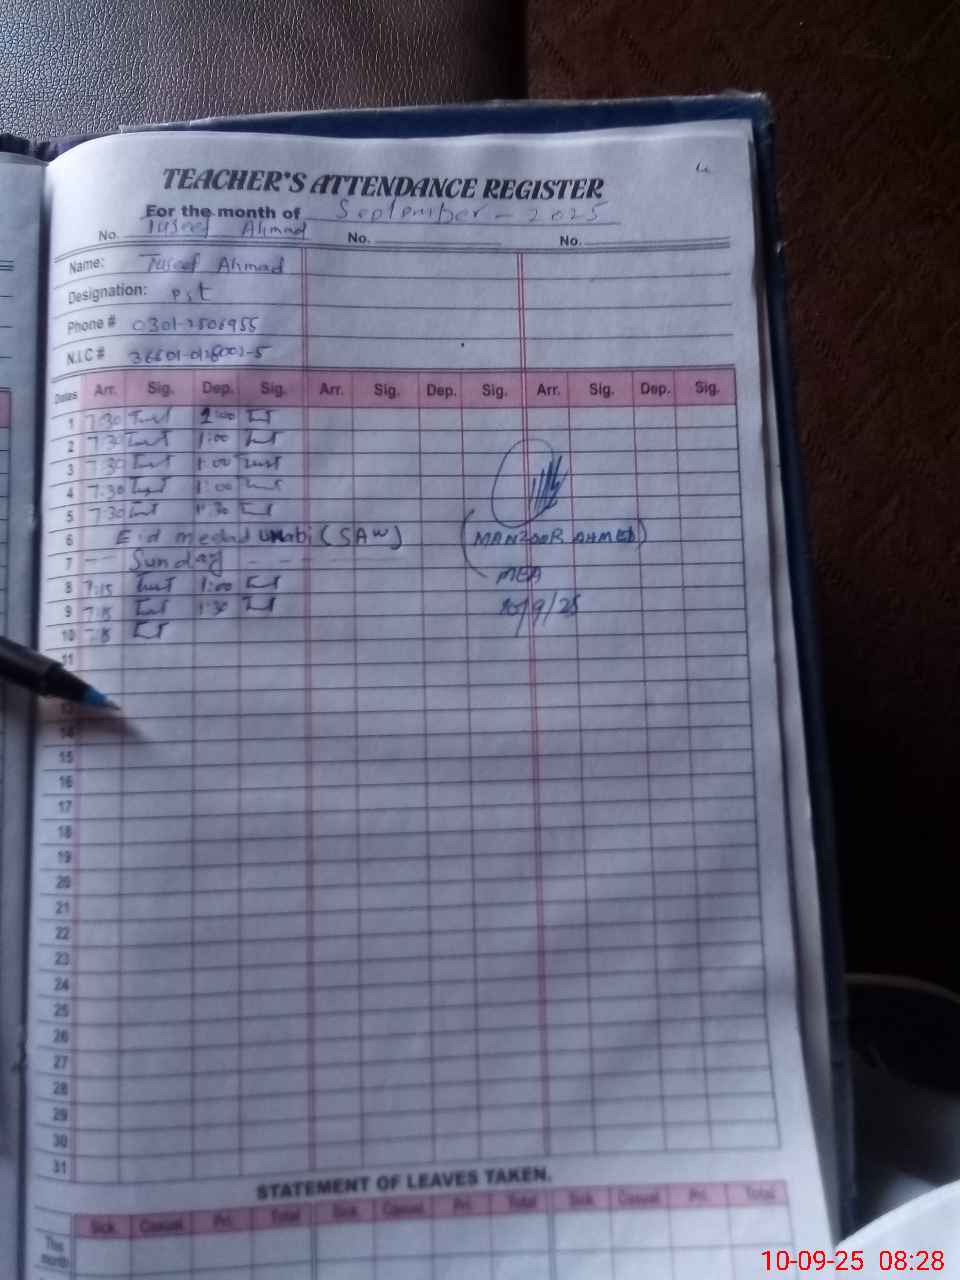 TEACHER'S ATTENDANCE REGISTER
For the month of September - 2025
No. Tuseef Ahmad No. No.
Name: Tuseef Ahmad
Designation: Pst
Phone #
N.I.C #
Dates Arr. Sig. Dep. Sig. Arr. Sig. Dep. Sig. Arr. Sig. Dep. Sig.
1 7:30 1:00
2 7:30 1:00
3 7:30 1:00
4 7:30 1:00
5 7:30
6 Eid (SAW) (MANZOOR AHMED)
7 Sunday
8 7:15 1:00 MEA
9 7:15 1:30 10/9/25
10 7:15
11
13
14
15
16
17
18
19
20
21
22
23
24
25
26
27
28
29
30
31
STATEMENT OF LEAVES TAKEN.
Sick Casual Pri. Total Sick Casual Pri. Total Sick Casual Pri. Total
This month
10-09-25 08:28